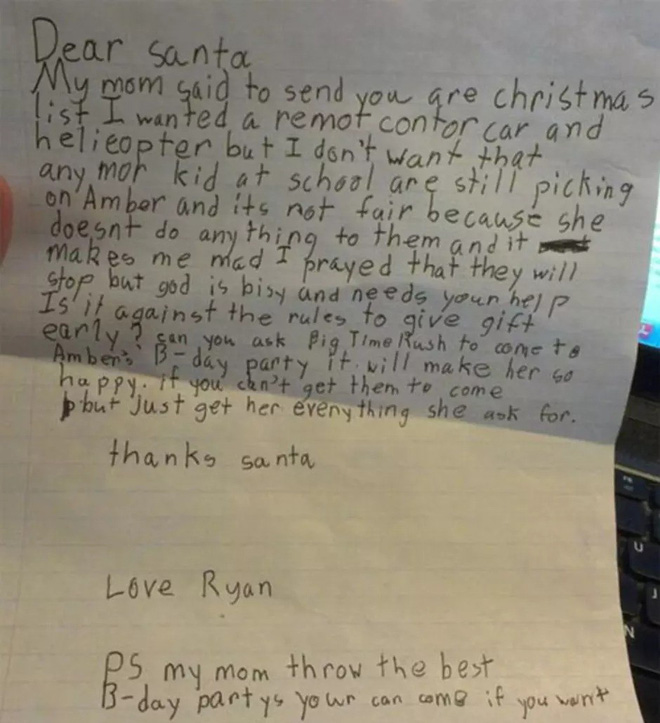 Dear santa
My mom said to send you are christmas
list I wanted a remot contor car and
helicopter but I don't want that
any mor kid at school are still picking
on Amber and its not fair because she
doesnt do anything to them and it
makes me mad I prayed that they will
stop but god is bisy and needs your help
Is it against the rules to give gift
early? can you ask Big Time Rush to come to
Amber's B-day party it will make her so
happy. if you can't get them to come
but just get her everything she ask for.
thanks santa
Love Ryan
PS my mom throw the best
B-day partys your can come if you want
U
J
N